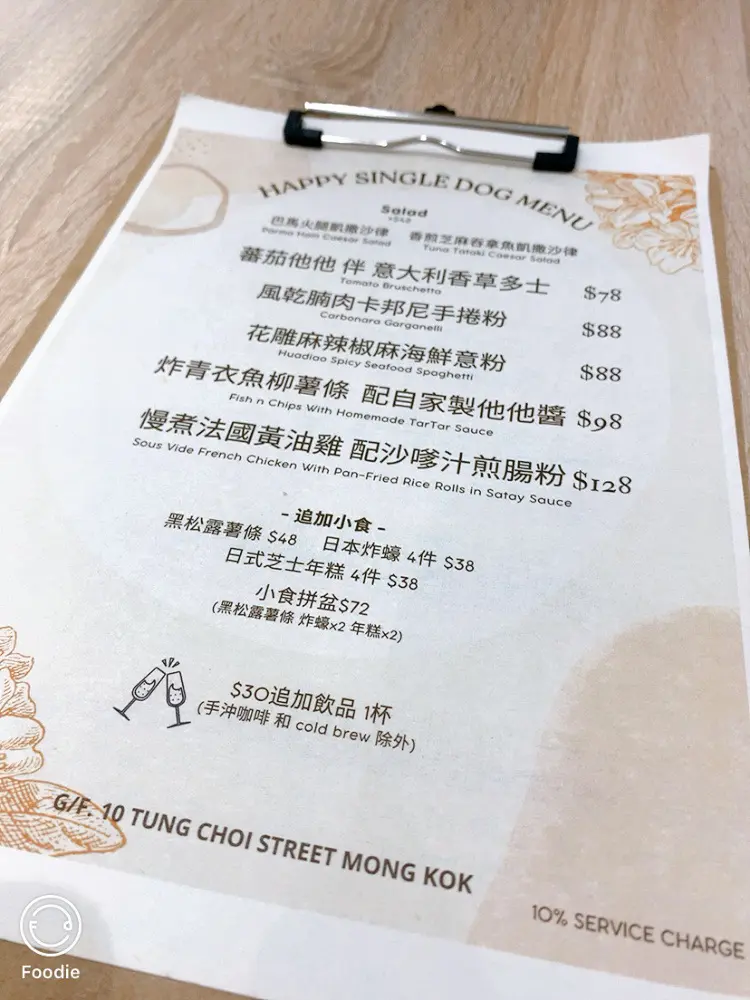 HAPPY SINGLE DOG MENU
Salad
+$48
巴馬火腿凱撒沙律 香煎芝麻吞拿魚凱撒沙律
Parma Ham Caesar Salad Tuna Tataki Caesar Salad
蕃茄他他 伴 意大利香草多士 $78
Tomato Bruschetta
風乾腩肉卡邦尼手捲粉 $88
Carbonara Garganelli
花雕麻辣椒麻海鮮意粉 $88
Huadiao Spicy Seafood Spaghetti
炸青衣魚柳薯條 配自家製他他醬 $98
Fish n Chips With Homemade TarTar Sauce
慢煮法國黃油雞 配沙嗲汁煎腸粉 $128
Sous Vide French Chicken With Pan-Fried Rice Rolls in Satay Sauce
- 追加小食 -
黑松露薯條 $48 日本炸蠔 4件 $38
日式芝士年糕 4件 $38
小食拼盆$72
(黑松露薯條 炸蠔x2 年糕x2)
$30追加飲品 1杯
(手沖咖啡 和 cold brew 除外)
G/F. 10 TUNG CHOI STREET MONG KOK
10% SERVICE CHARGE
Foodie